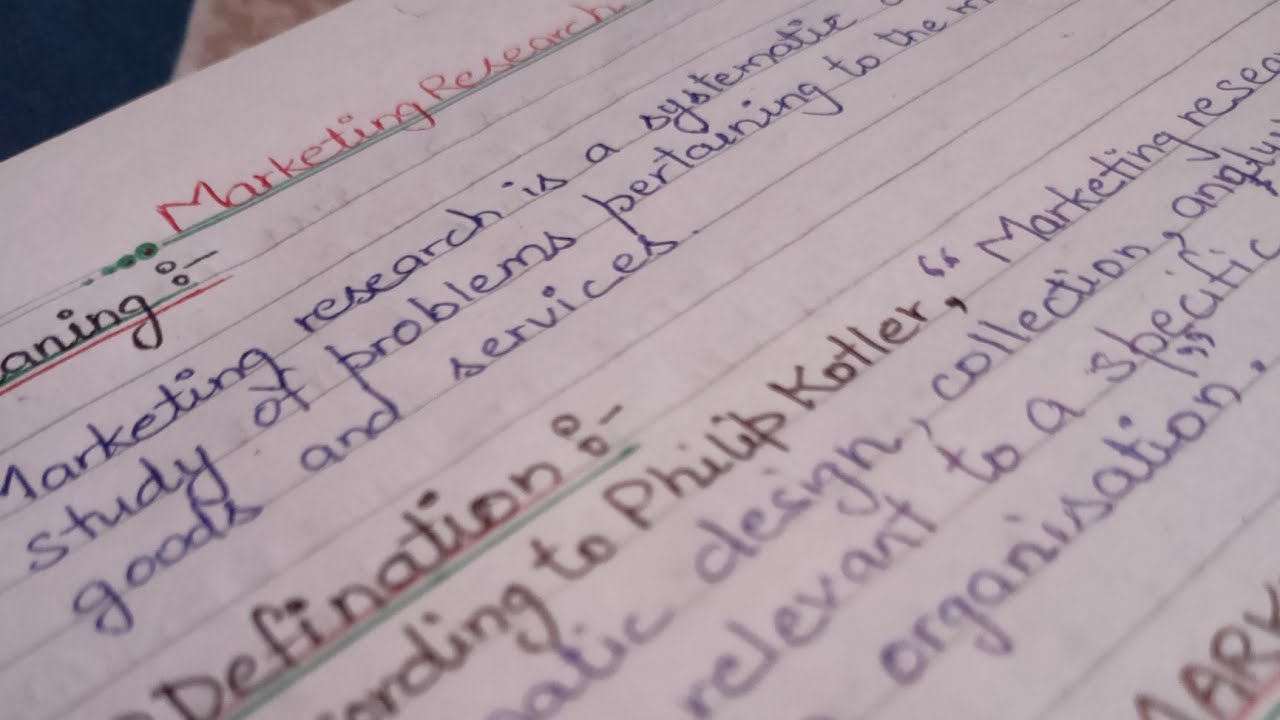 Marketing Research
aning :-
Marketing research is a systematic
study of problems pertaining to the
goods and services.
Defination :-
ording to Philip Kotler, " Marketing resea
atic design, collection,
relevant to a specific
organisation. "
MARK